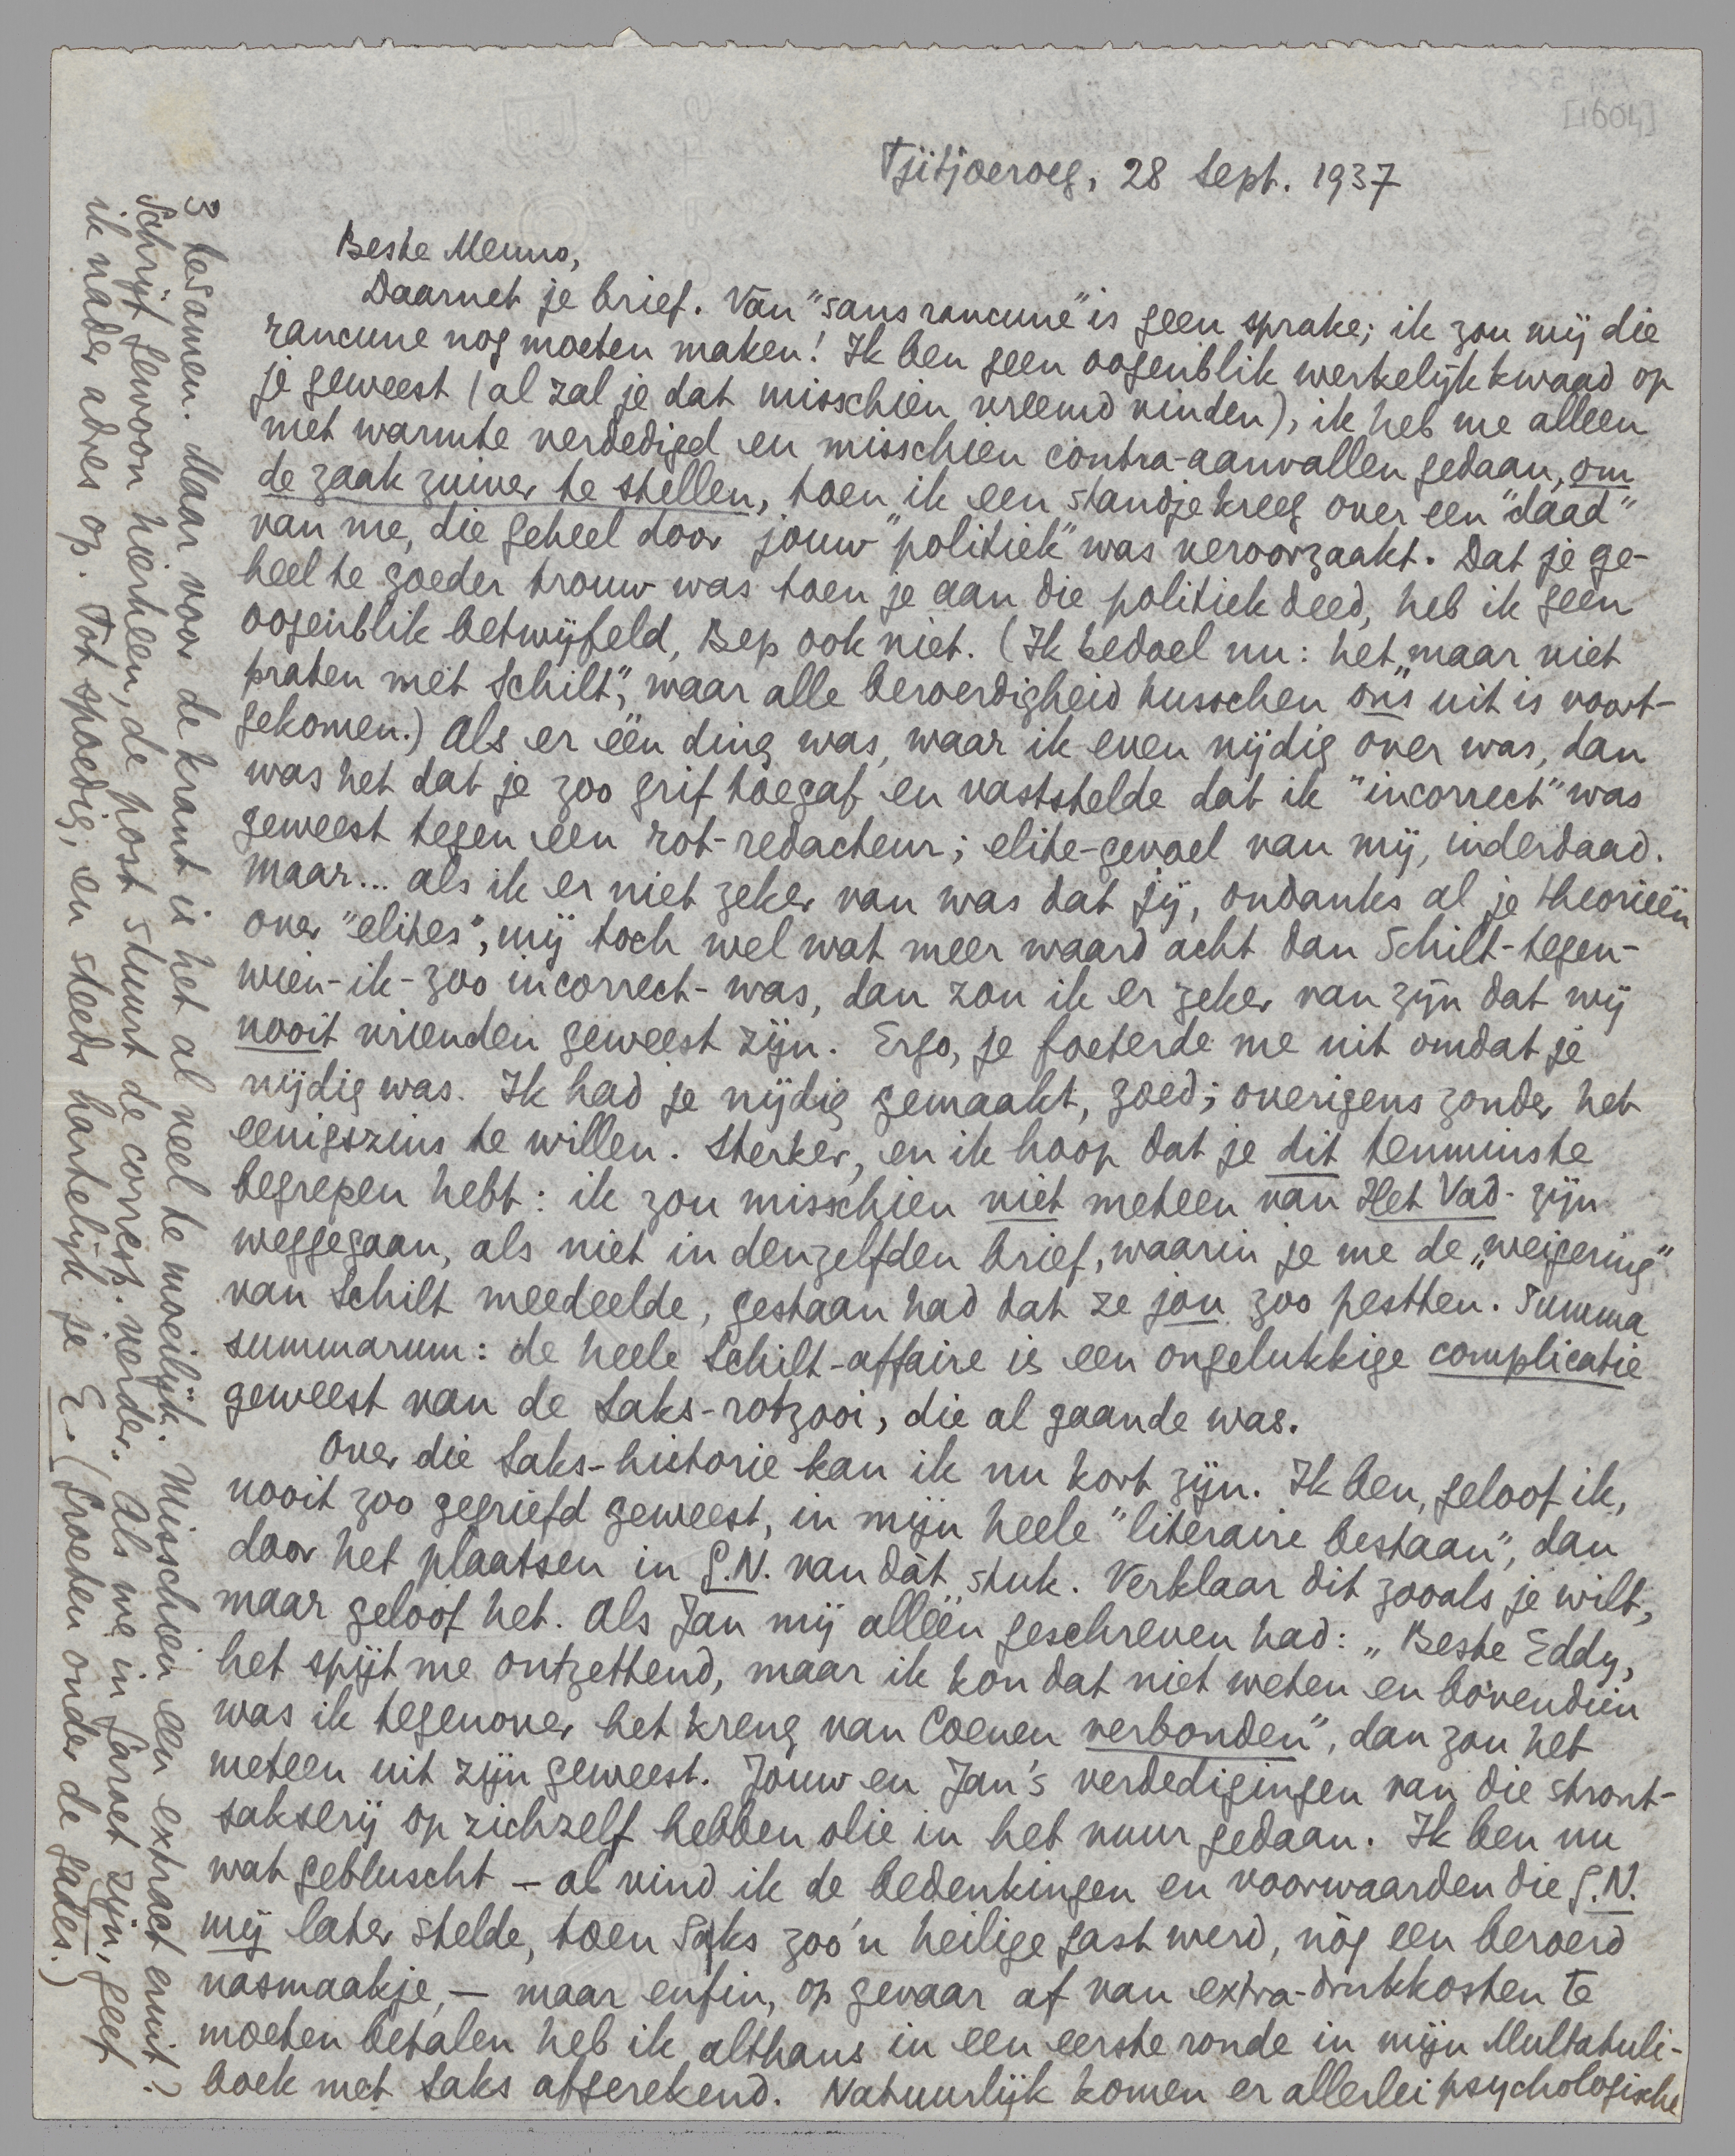 [1604]
Tjitjoeroeg, 28 Sept. 1937
Beste Menno,
Daarnet je brief. Van "sans rancune" is geen sprake; ik zou mij die
rancune nog moeten maken! Ik ben geen oogenblik werkelijk kwaad op
je geweest (al zal je dat misschien vreemd vinden), ik heb me alleen
met warmte verdedigd en misschien contra-aanvallen gedaan, om
de zaak zuiver te stellen, toen ik een standje kreeg over een "daad"
van me, die geheel door jouw "politiek" was veroorzaakt. Dat je ge-
heel te goeder trouw was toen je aan die politiek deed, heb ik geen
oogenblik betwijfeld, Bep ook niet. (Ik bedoel nu: het „maar niet
praten met Schilt", waar alle beroerdigheid tusschen ons uit is voort-
gekomen.) Als er één ding was, waar ik even nijdig over was, dan
was het dat je zoo grif toegaf en vaststelde dat ik "incorrect" was
geweest tegen een rot-redacteur; elite-gevoel van mij, inderdaad.
Maar... als ik er niet zeker van was dat jij, ondanks al je theorieën
over "elites", mij toch wel wat meer waard acht dan Schilt-tegen-
wien-ik-zoo incorrect-was, dan zou ik er zeker van zijn dat wij
nooit vrienden geweest zijn. Ergo, je foeterde me uit omdat je
nijdig was. Ik had je nijdig gemaakt, goed; overigens zonder het
eenigszins te willen. Sterker, en ik hoop dat je dit tenminste
begrepen hebt: ik zou misschien niet meteen van Het Vad. zijn
weggegaan, als niet in denzelfden brief, waarin je me de „weigering"
van Schilt meedeelde, gestaan had dat ze jou zoo pestten. Summa
summarum: de heele Schilt-affaire is een ongelukkige complicatie
geweest van de Saks-rotzooi, die al gaande was.
Over die Saks-historie kan ik nu kort zijn. Ik ben, geloof ik,
nooit zoo gegriefd geweest, in mijn heele "literaire bestaan", dan
door het plaatsen in G.N. van dàt stuk. Verklaar dit zooals je wilt,
maar geloof het. Als Jan mij alléén geschreven had: „Beste Eddy,
het spijt me ontzettend, maar ik kon dat niet weten en bovendien
was ik tegenover het kreng van Coenen verbonden", dan zou het
meteen uit zijn geweest. Jouw en Jan's verdedigingen van die stront-
sakserij op zichzelf hebben olie in het vuur gedaan. Ik ben nu
wat gebluscht – al vind ik de bedenkingen en voorwaarden die G.N.
mij later stelde, toen Saks zoo'n heilige gast werd, nòg een beroerd
nasmaakje, – maar enfin, op gevaar af van extra-drukkosten te
moeten betalen heb ik althans in een eerste ronde in mijn Multatuli-
boek met Saks afgerekend. Natuurlijk komen er allerlei psychologische
3 tesamen. Maar voor de krant is het al veel te moeilijk. Misschien een extract eruit?
Schrijf gewoon hierheen, de post stuurt de corresp. verder. Als we in Garoet zijn, geef
ik nader adres op. Tot spoedig, en steeds hartelijk je E. (Groeten onder de gades.)